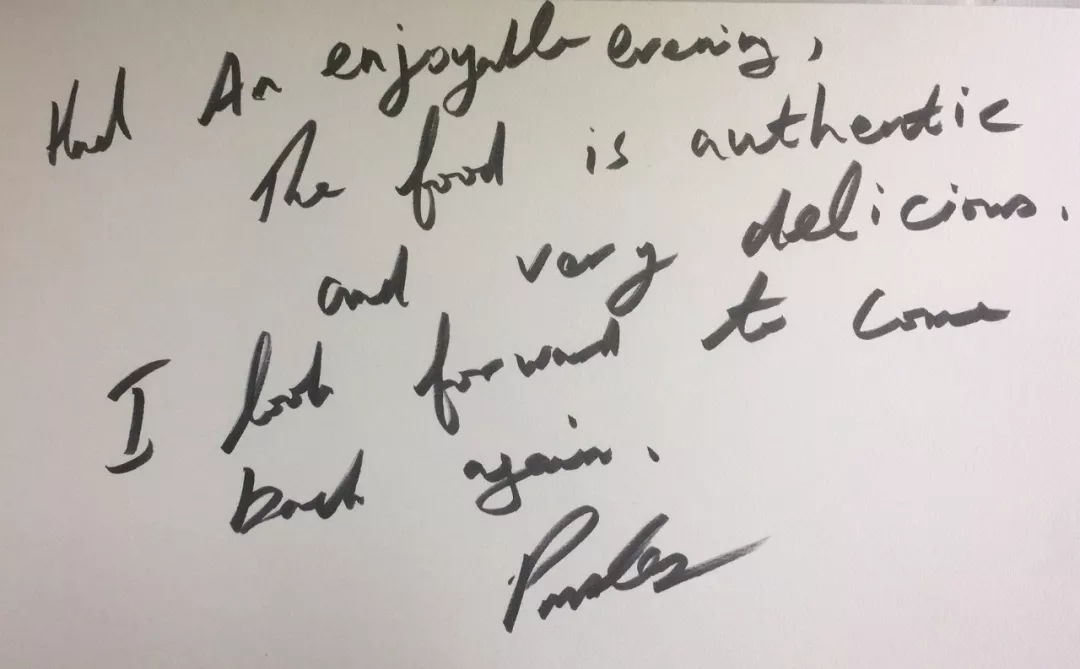 Had An enjoyable evening,
The food is authentic
and very delicious.
I look forward to come
back again.